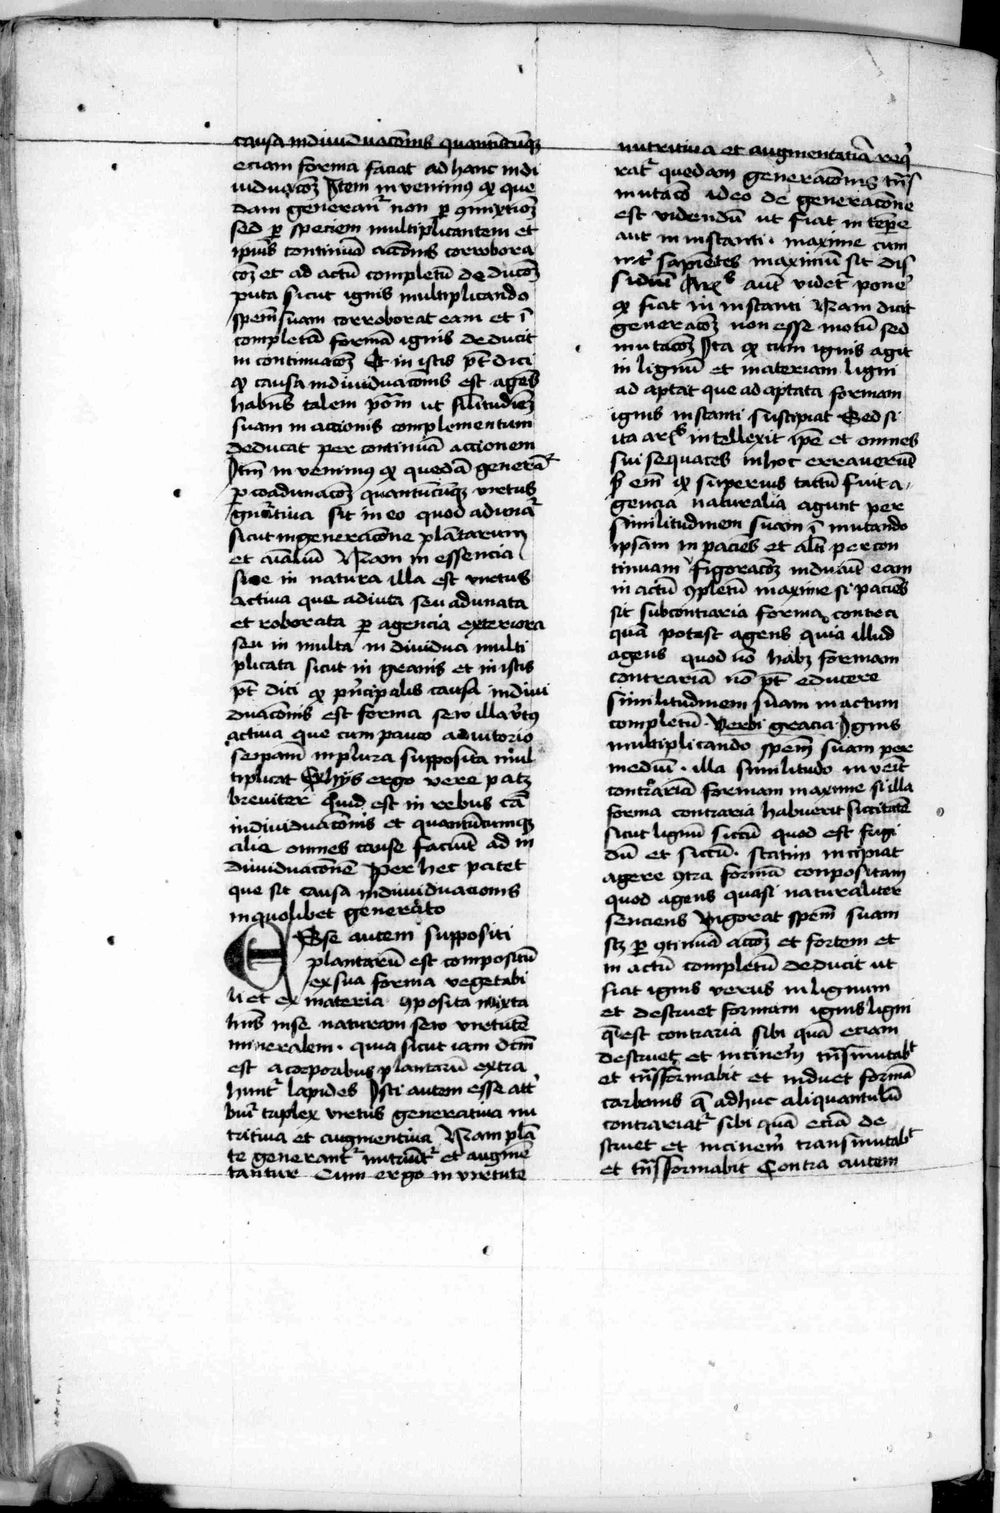 causa indiuiduacōnis quantūcūqꝫ
eciam forma faciat ad hanc indi
uiduacōꝫ Itēm inuenimꝰ qꝫ que
dam generant᷑ non ꝑ ꝯmixtiōꝫ
sed ꝑ speciem multiplicantem et
ipiꝰ continuā accōnis corrobora
cōꝫ et ad actū completū deducōꝫ
puta sicut ignis multiplicando
spēm suam corroborat eam et ī
completā formā ignis deducit
in continuacōꝫ Et in istis pt̄ dici
qꝫ causa indiuiduacōnis est agēs
habēs talem pōm ut silitudīeꝫ
suam in accionis complementum
deducat per continuā accionem
Itm̄ inuenimꝰ qꝫ quedā generāt᷑
ꝑ coadunacōꝫ quantūcūqꝫ virtus
gnꝰatiua sit in eo quod adunat᷑
sicut in generacōne plantarum
et aīaliū Nam in essencia
siue in natura illa est virtus
activa que adiuta seu adunata
et roborata ꝑ agencia exteriora
seu in multa indiuidua multi
plicata sicut in granis et in istis
pt̄ dici qꝫ p̄ncipalis causa indiui
duacōnis est forma seu illa vt̄us
actiua que cum pauco adiutorio
seipam̄ in plura supposita mul
tiplicat Ex hijs ergo vere patꝫ
breviter Quid est in rebus cā
indiuiduacōnis et quantūcumqꝫ
alie omnes cause faciūt ad in
diuiduacōnē Per hec patet
que sit causa indiuiduacionis
in quolibet generato
Esse autem suppositi
plantarū est compositū
ex sua forma vegetabi
li et ex materia ꝯposita mixta
hn̄s in se naturam seu virtutē
mineralem · quia sicut iam dcm̄
est a corporibus plantarū extra
hunt᷑ lapides Isti autem esse att᷑
buit᷑ triplex virtus generatiua nu
tritiua et augmentiua Nam plā
te generant᷑ nutriūt᷑ et augmē
tantur Cum ergo in virtute
nutritiua et augmentatiā req᷑
rat᷑ quedam generacōnis tn̄s
mutacō ideo de generacōne
est videndū ut fiat in tꝑe
aut in instanti · maxime cum
int᷑ sapiētes maximū sit dis
sidiū Arꝉˢ autē videt᷑ ponē
qꝫ fiat in instanti Nam dicit
generacōꝫ non esse motū sed
mutacōꝫ Ita qꝫ cum ignis agit
in lignū et materiam ligni
adaptat que adaptata formam
ignis instanti suscipiat Sed si
ita arꝉˢ intellexit ipē et omnes
sui sequaces in hoc erraverūt
qꝫ superius tactū fuit a
gencia naturalia agunt per
similitudinem suam ī mutando
ipsam in paciēs et alīi per con
tinuam figoracōꝫ inducūt eam
in actū ꝯpletū maxime si paciēs
sit subcontraria forma contra
quā potest agens quia illud
agens quod nō habꝫ formam
contrariā nō pt̄ educere
similitudinem suam in actum
completū · Verbi gracia · Ignis
multiplicando spēm suam per
mediū · illa similitudo inueīt
contrariā formam maxime si illa
forma contraria habuerit siccitatē
sicut lignū siccū quod est frigi
dū et siccū · statim incipiat
agere ꝯtra formā compositam
quod agens quasi naturaliter
senciens vigorat spēm suam
scꝫ ꝑ ꝯtinuā accōꝫ et fortem et
in actū completū deducit ut
fiat ignis verus in lignum
et destruet formam ignis ligni
q̄ est contraria sibi quā eciam
destruet et incinerē tn̄smutabᵗ
et tn̄sformabit et induet formā
carbonis q̄ adhuc aliquantulū
contrariat᷑ sibi quā eciā de
struet et incinerē transmutabᵗ
et tn̄sformabit Contra autem